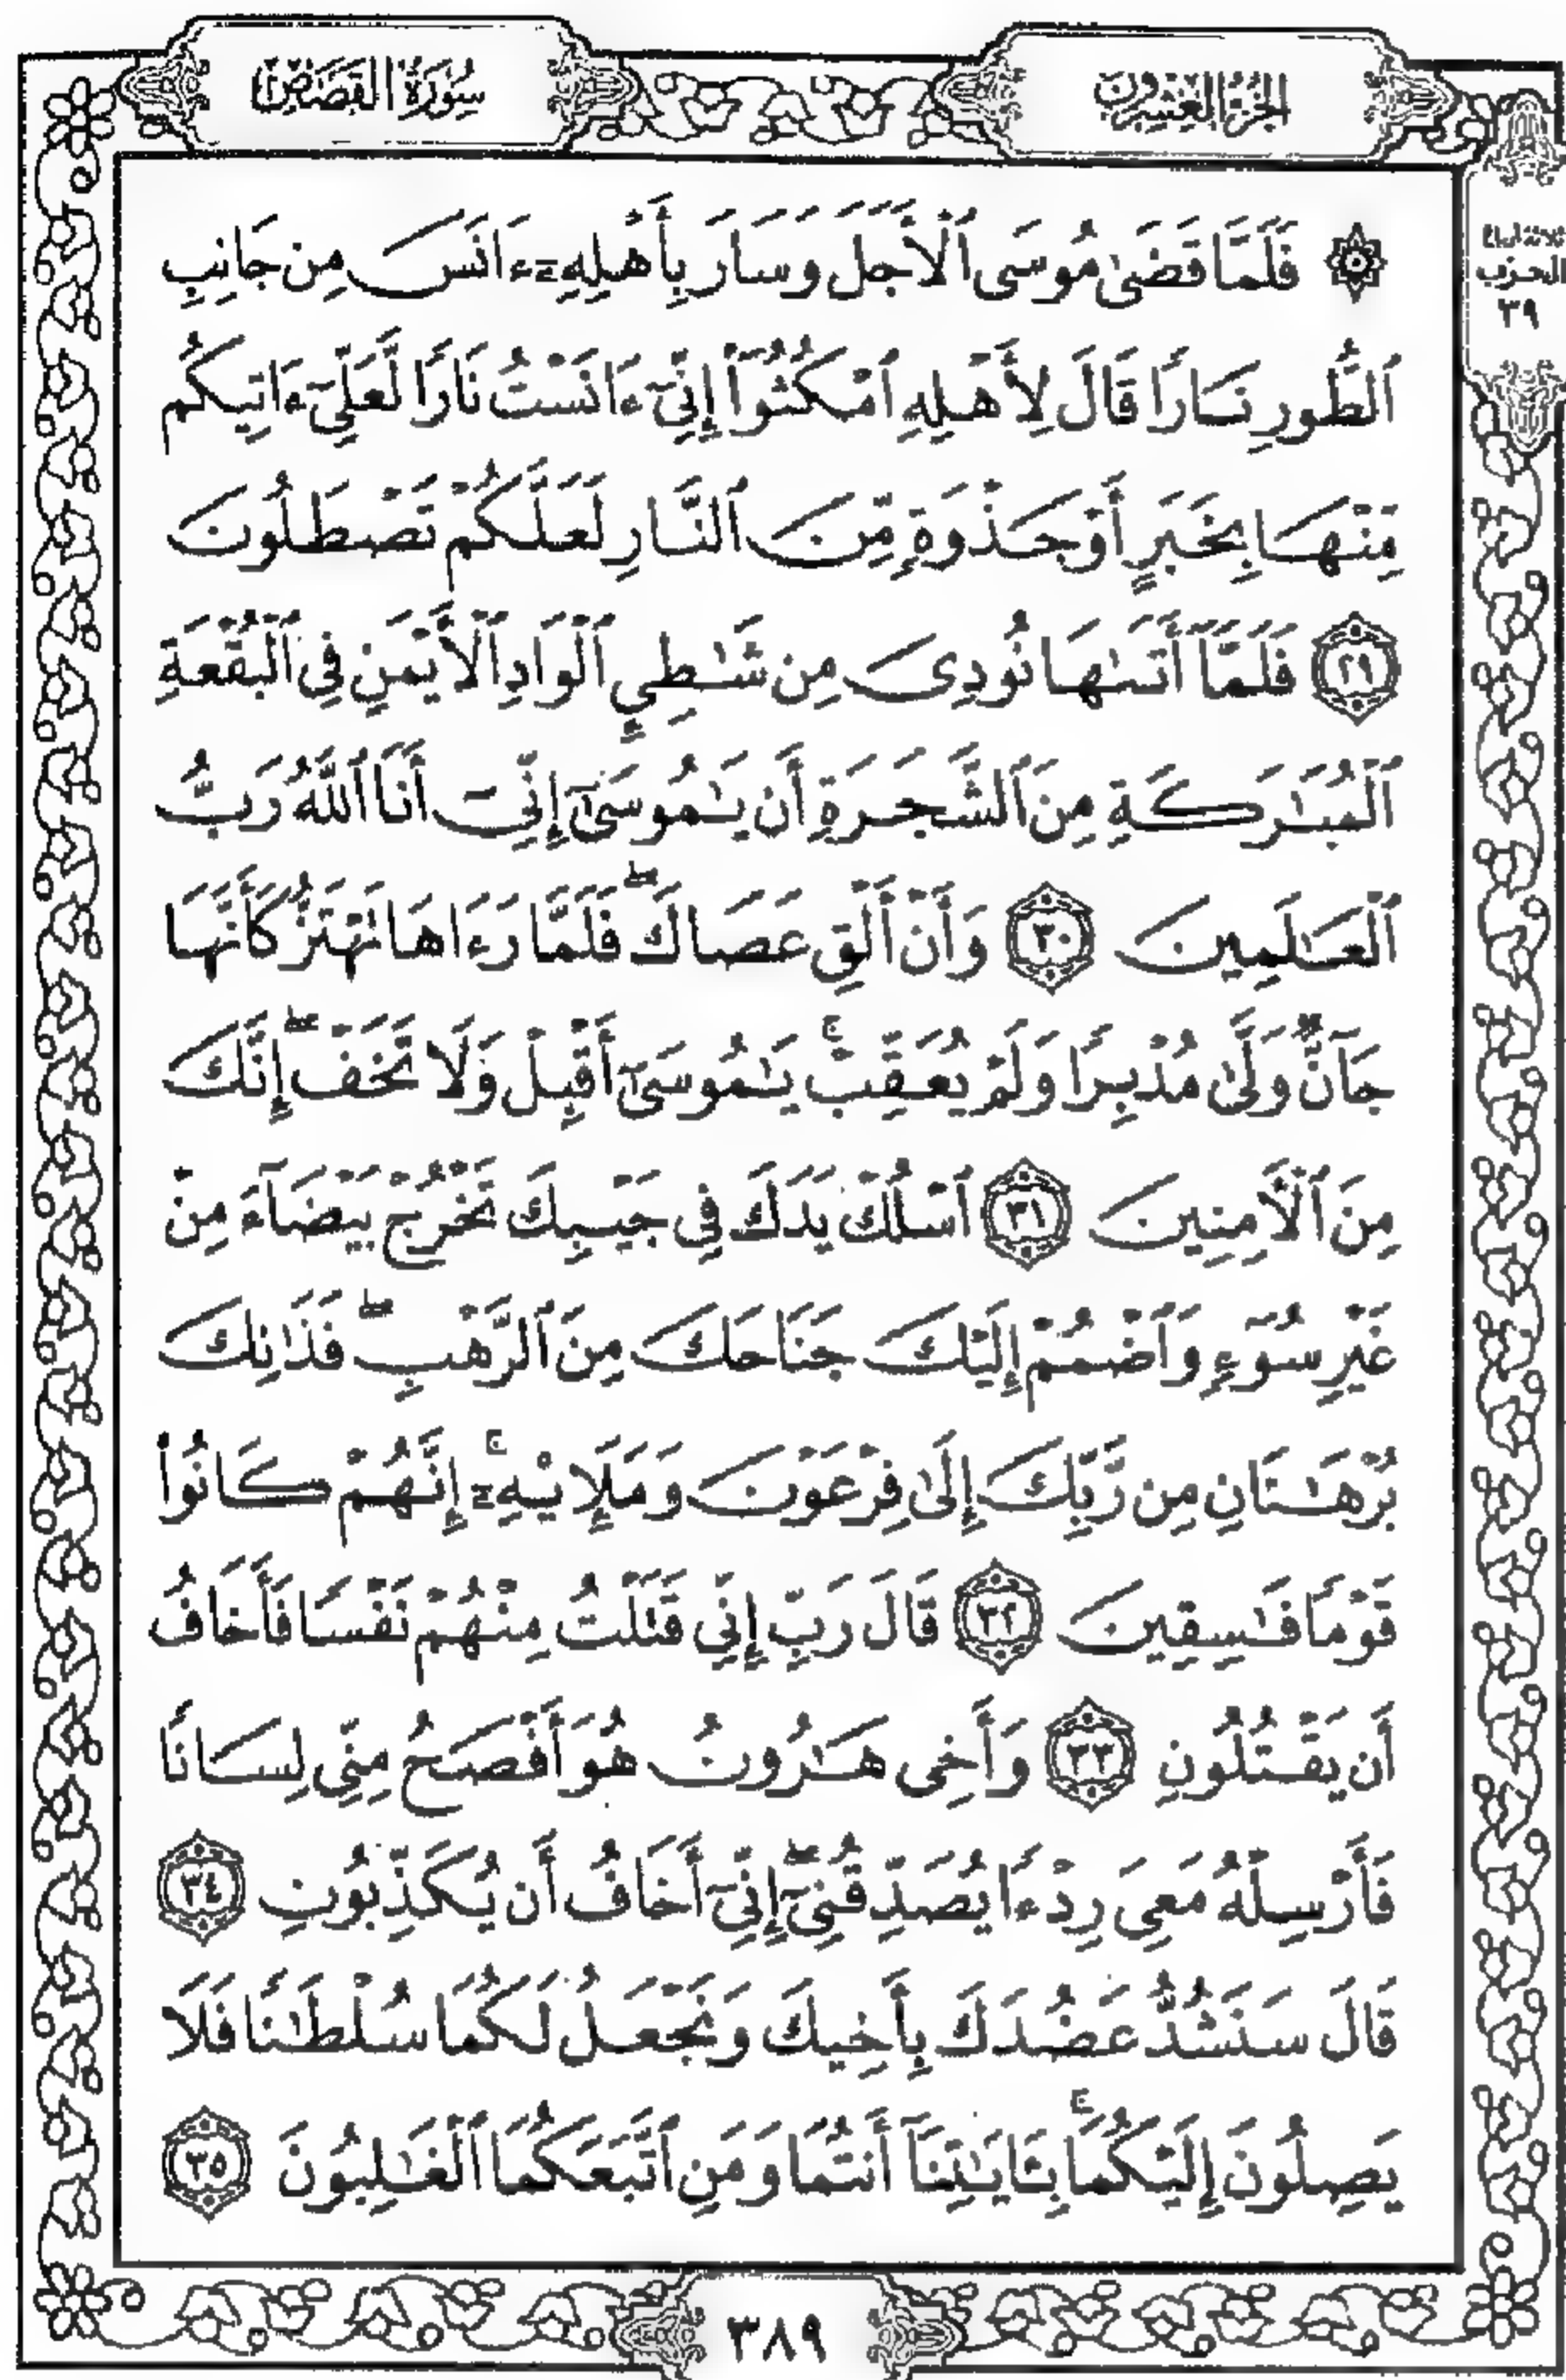 سُورَةُ القَصَصِ
الجُزْءُ العِشْرُونَ
ثلاثة أرباع
الحزب
٣٩
۞ فَلَمَّا قَضَىٰ مُوسَى ٱلْأَجَلَ وَسَارَ بِأَهْلِهِۦٓ ءَانَسَ مِن جَانِبِ
ٱلطُّورِ نَارًا قَالَ لِأَهْلِهِ ٱمْكُثُوٓا۟ إِنِّىٓ ءَانَسْتُ نَارًا لَّعَلِّىٓ ءَاتِيكُم
مِّنْهَا بِخَبَرٍ أَوْ جَذْوَةٍ مِّنَ ٱلنَّارِ لَعَلَّكُمْ تَصْطَلُونَ
٢٩ فَلَمَّآ أَتَىٰهَا نُودِىَ مِن شَٰطِئِ ٱلْوَادِ ٱلْأَيْمَنِ فِى ٱلْبُقْعَةِ
ٱلْمُبَٰرَكَةِ مِنَ ٱلشَّجَرَةِ أَن يَٰمُوسَىٰٓ إِنِّىٓ أَنَا ٱللَّهُ رَبُّ
ٱلْعَٰلَمِينَ ٣٠ وَأَنْ أَلْقِ عَصَاكَ ۖ فَلَمَّا رَءَاهَا تَهْتَزُّ كَأَنَّهَا
جَآنٌّ وَلَّىٰ مُدْبِرًا وَلَمْ يُعَقِّبْ ۚ يَٰمُوسَىٰٓ أَقْبِلْ وَلَا تَخَفْ ۖ إِنَّكَ
مِنَ ٱلْـَٔامِنِينَ ٣١ ٱسْلُكْ يَدَكَ فِى جَيْبِكَ تَخْرُجْ بَيْضَآءَ مِنْ
غَيْرِ سُوٓءٍ وَٱضْمُمْ إِلَيْكَ جَنَاحَكَ مِنَ ٱلرَّهْبِ ۖ فَذَٰنِكَ
بُرْهَٰنَانِ مِن رَّبِّكَ إِلَىٰ فِرْعَوْنَ وَمَلَإِي۟هِۦٓ ۚ إِنَّهُمْ كَانُوا۟
قَوْمًا فَٰسِقِينَ ٣٢ قَالَ رَبِّ إِنِّى قَتَلْتُ مِنْهُمْ نَفْسًا فَأَخَافُ
أَن يَقْتُلُونِ ٣٣ وَأَخِى هَٰرُونُ هُوَ أَفْصَحُ مِنِّى لِسَانًا
فَأَرْسِلْهُ مَعِىَ رِدْءًا يُصَدِّقُنِىٓ ۖ إِنِّىٓ أَخَافُ أَن يُكَذِّبُونِ ٣٤
قَالَ سَنَشُدُّ عَضُدَكَ بِأَخِيكَ وَنَجْعَلُ لَكُمَا سُلْطَٰنًا فَلَا
يَصِلُونَ إِلَيْكُمَا ۚ بِـَٔايَٰتِنَآ أَنتُمَا وَمَنِ ٱتَّبَعَكُمَا ٱلْغَٰلِبُونَ ٣٥
٣٨٩